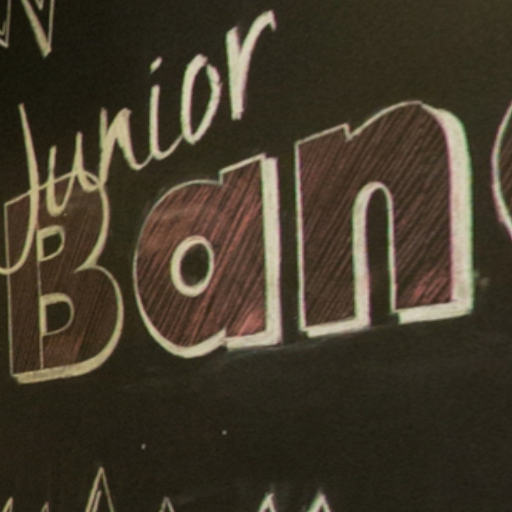 Junior
Ban